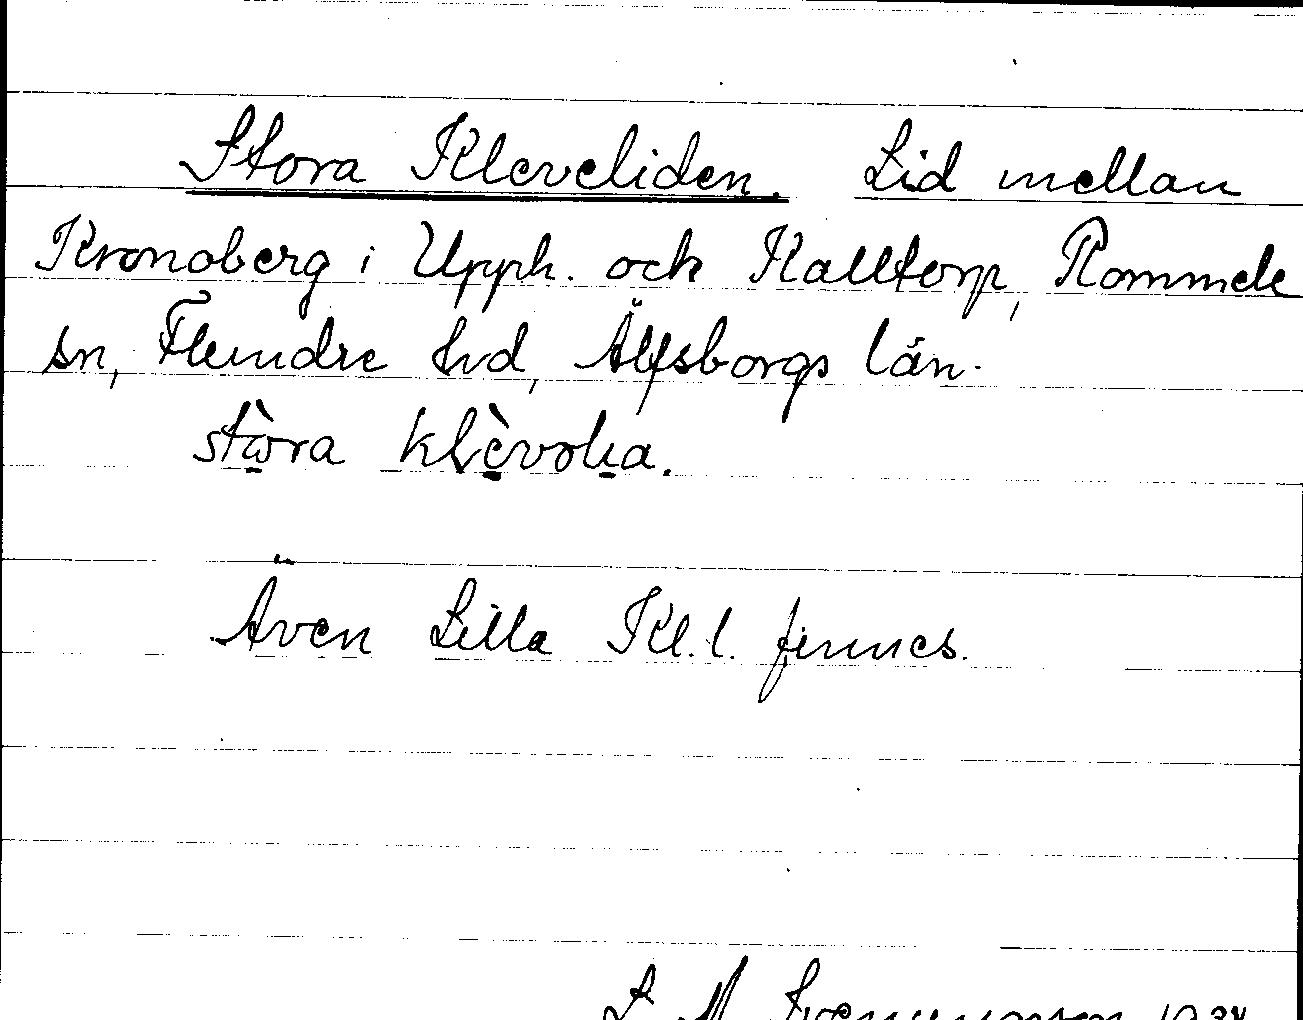 Stora Kleveliden. Lid mellan
Kronoberg i Upph. och Kalltorp, Rommele
sn, Flundre hd, Älfsborgs län.
stὼra klèvəlia.
Även Lilla Kl.l. finnes.